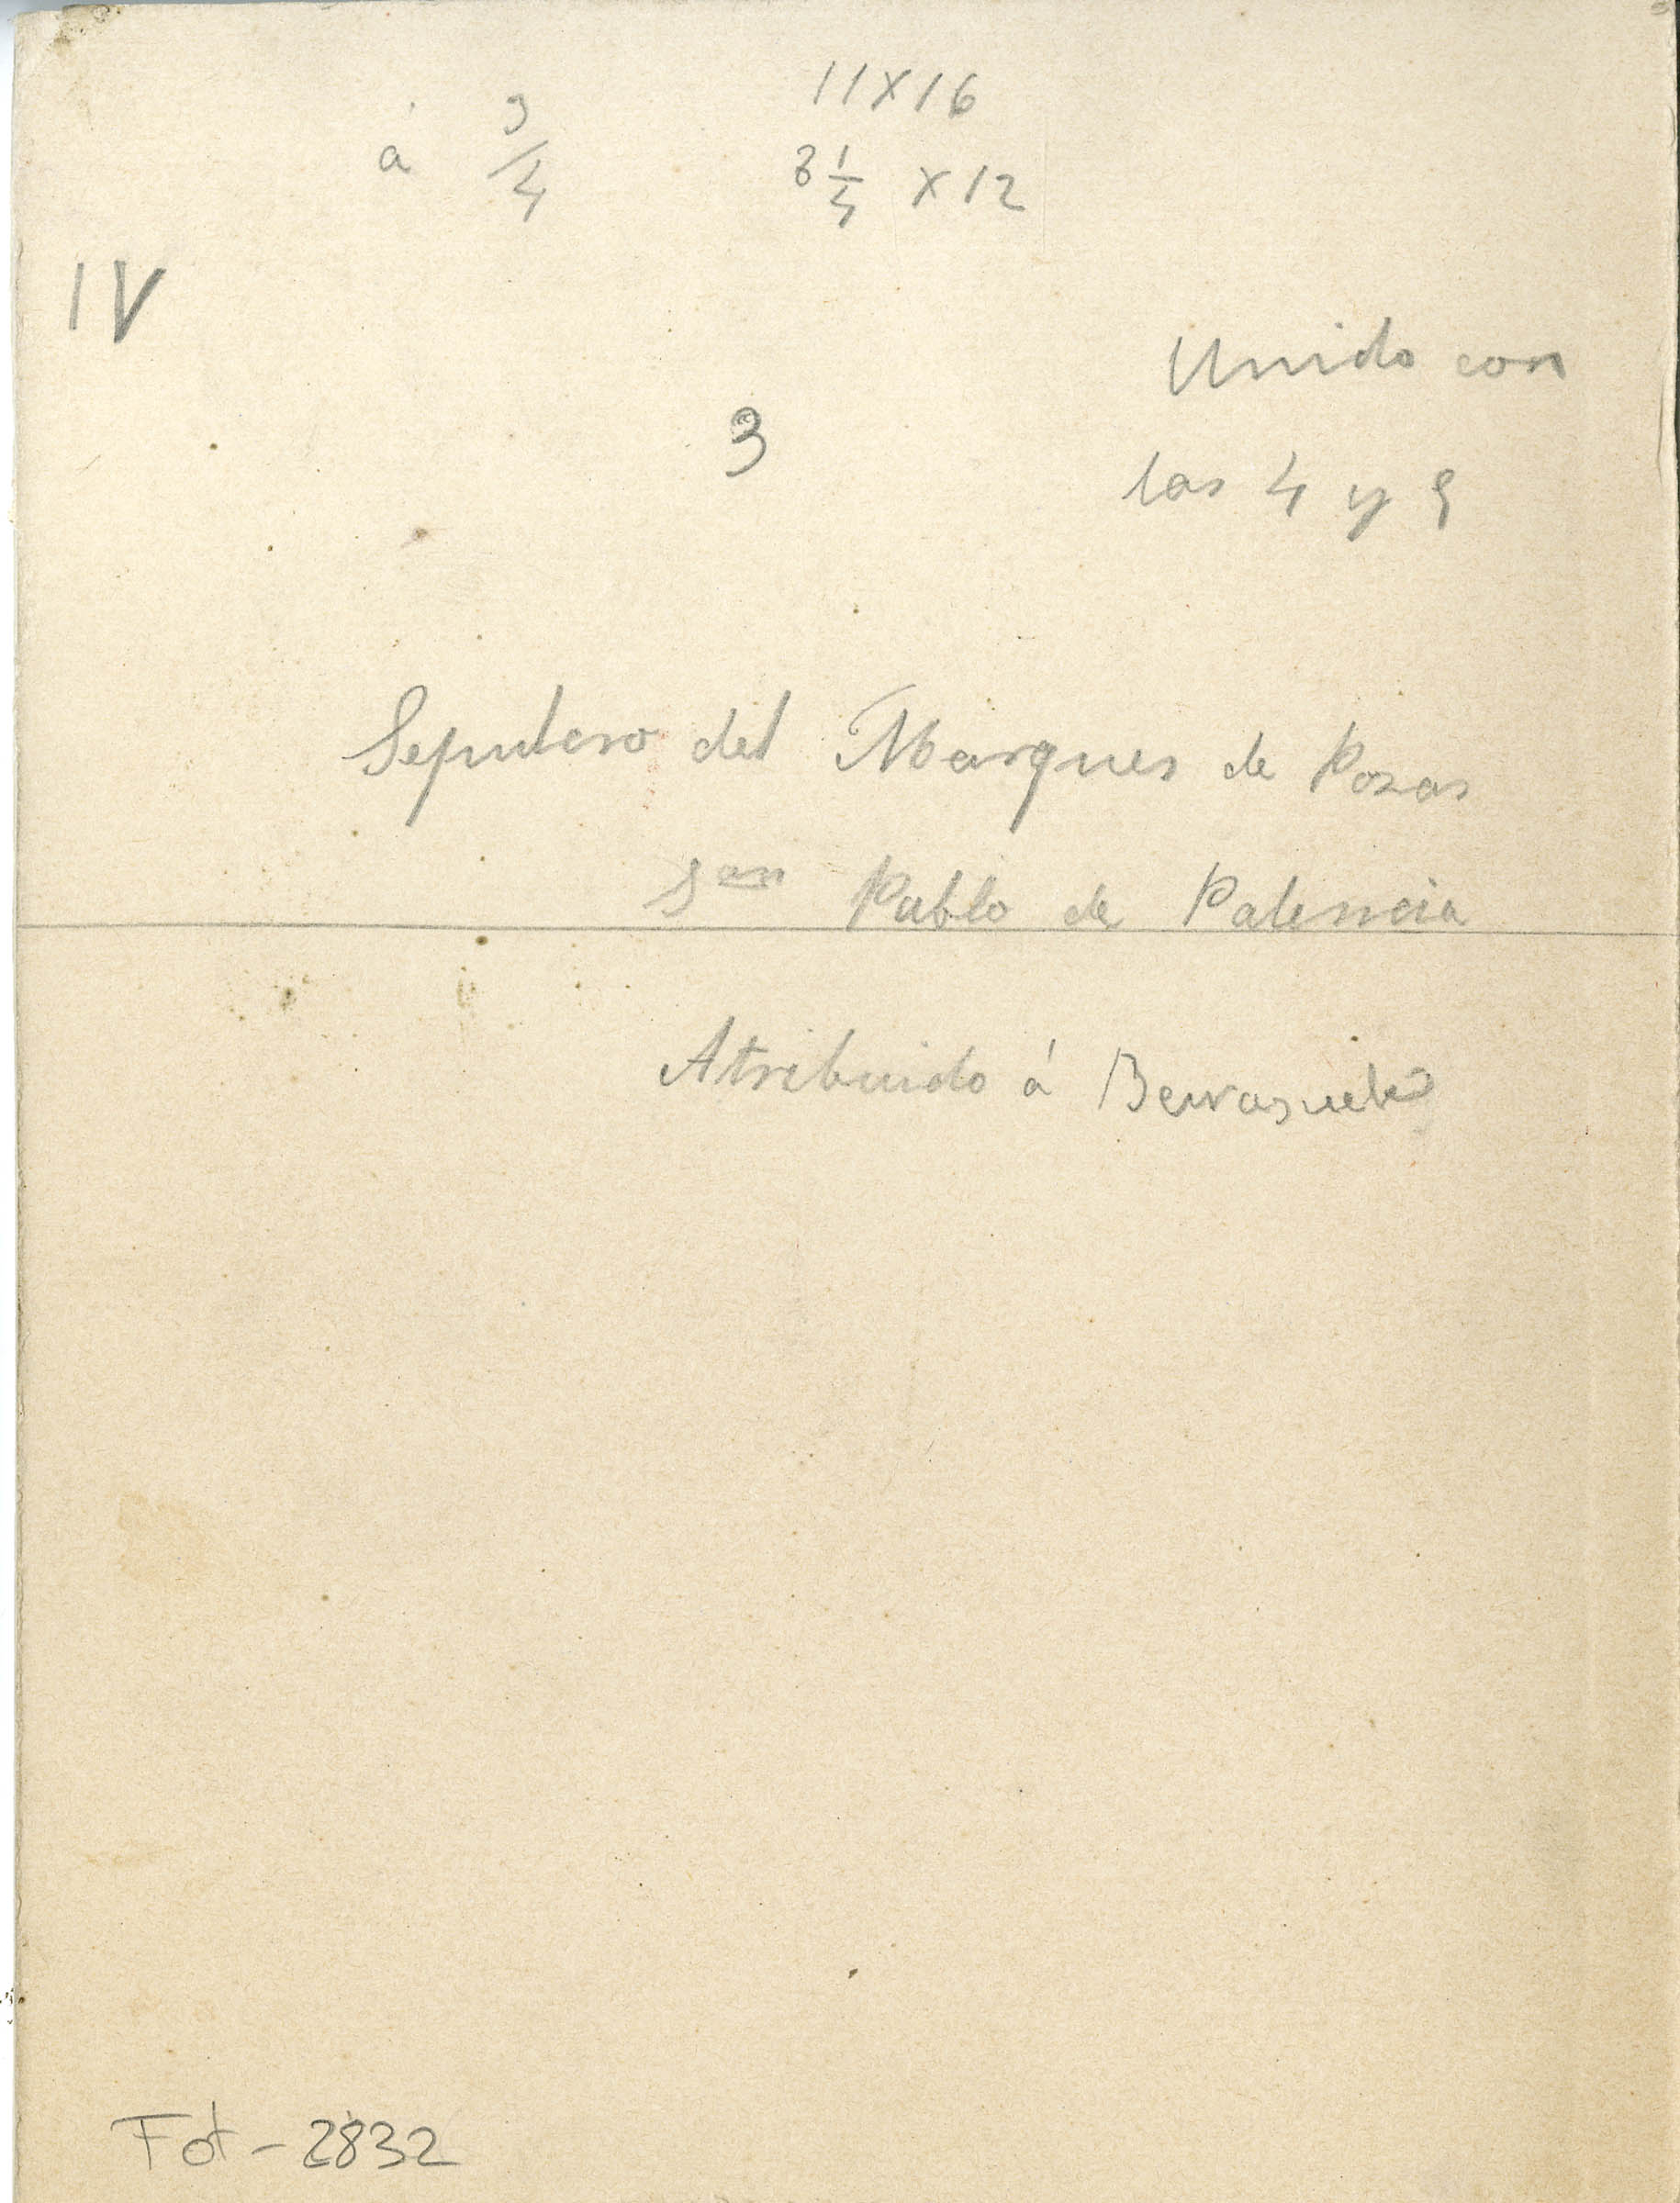 11 x 16
á 3/4
8 1/4 x 12
IV
Unido con
3
las 4 y 5
Sepulcro del Marques de Pozas
San Pablo de Palencia
Atribuido á Berruguete
Fot - 2832